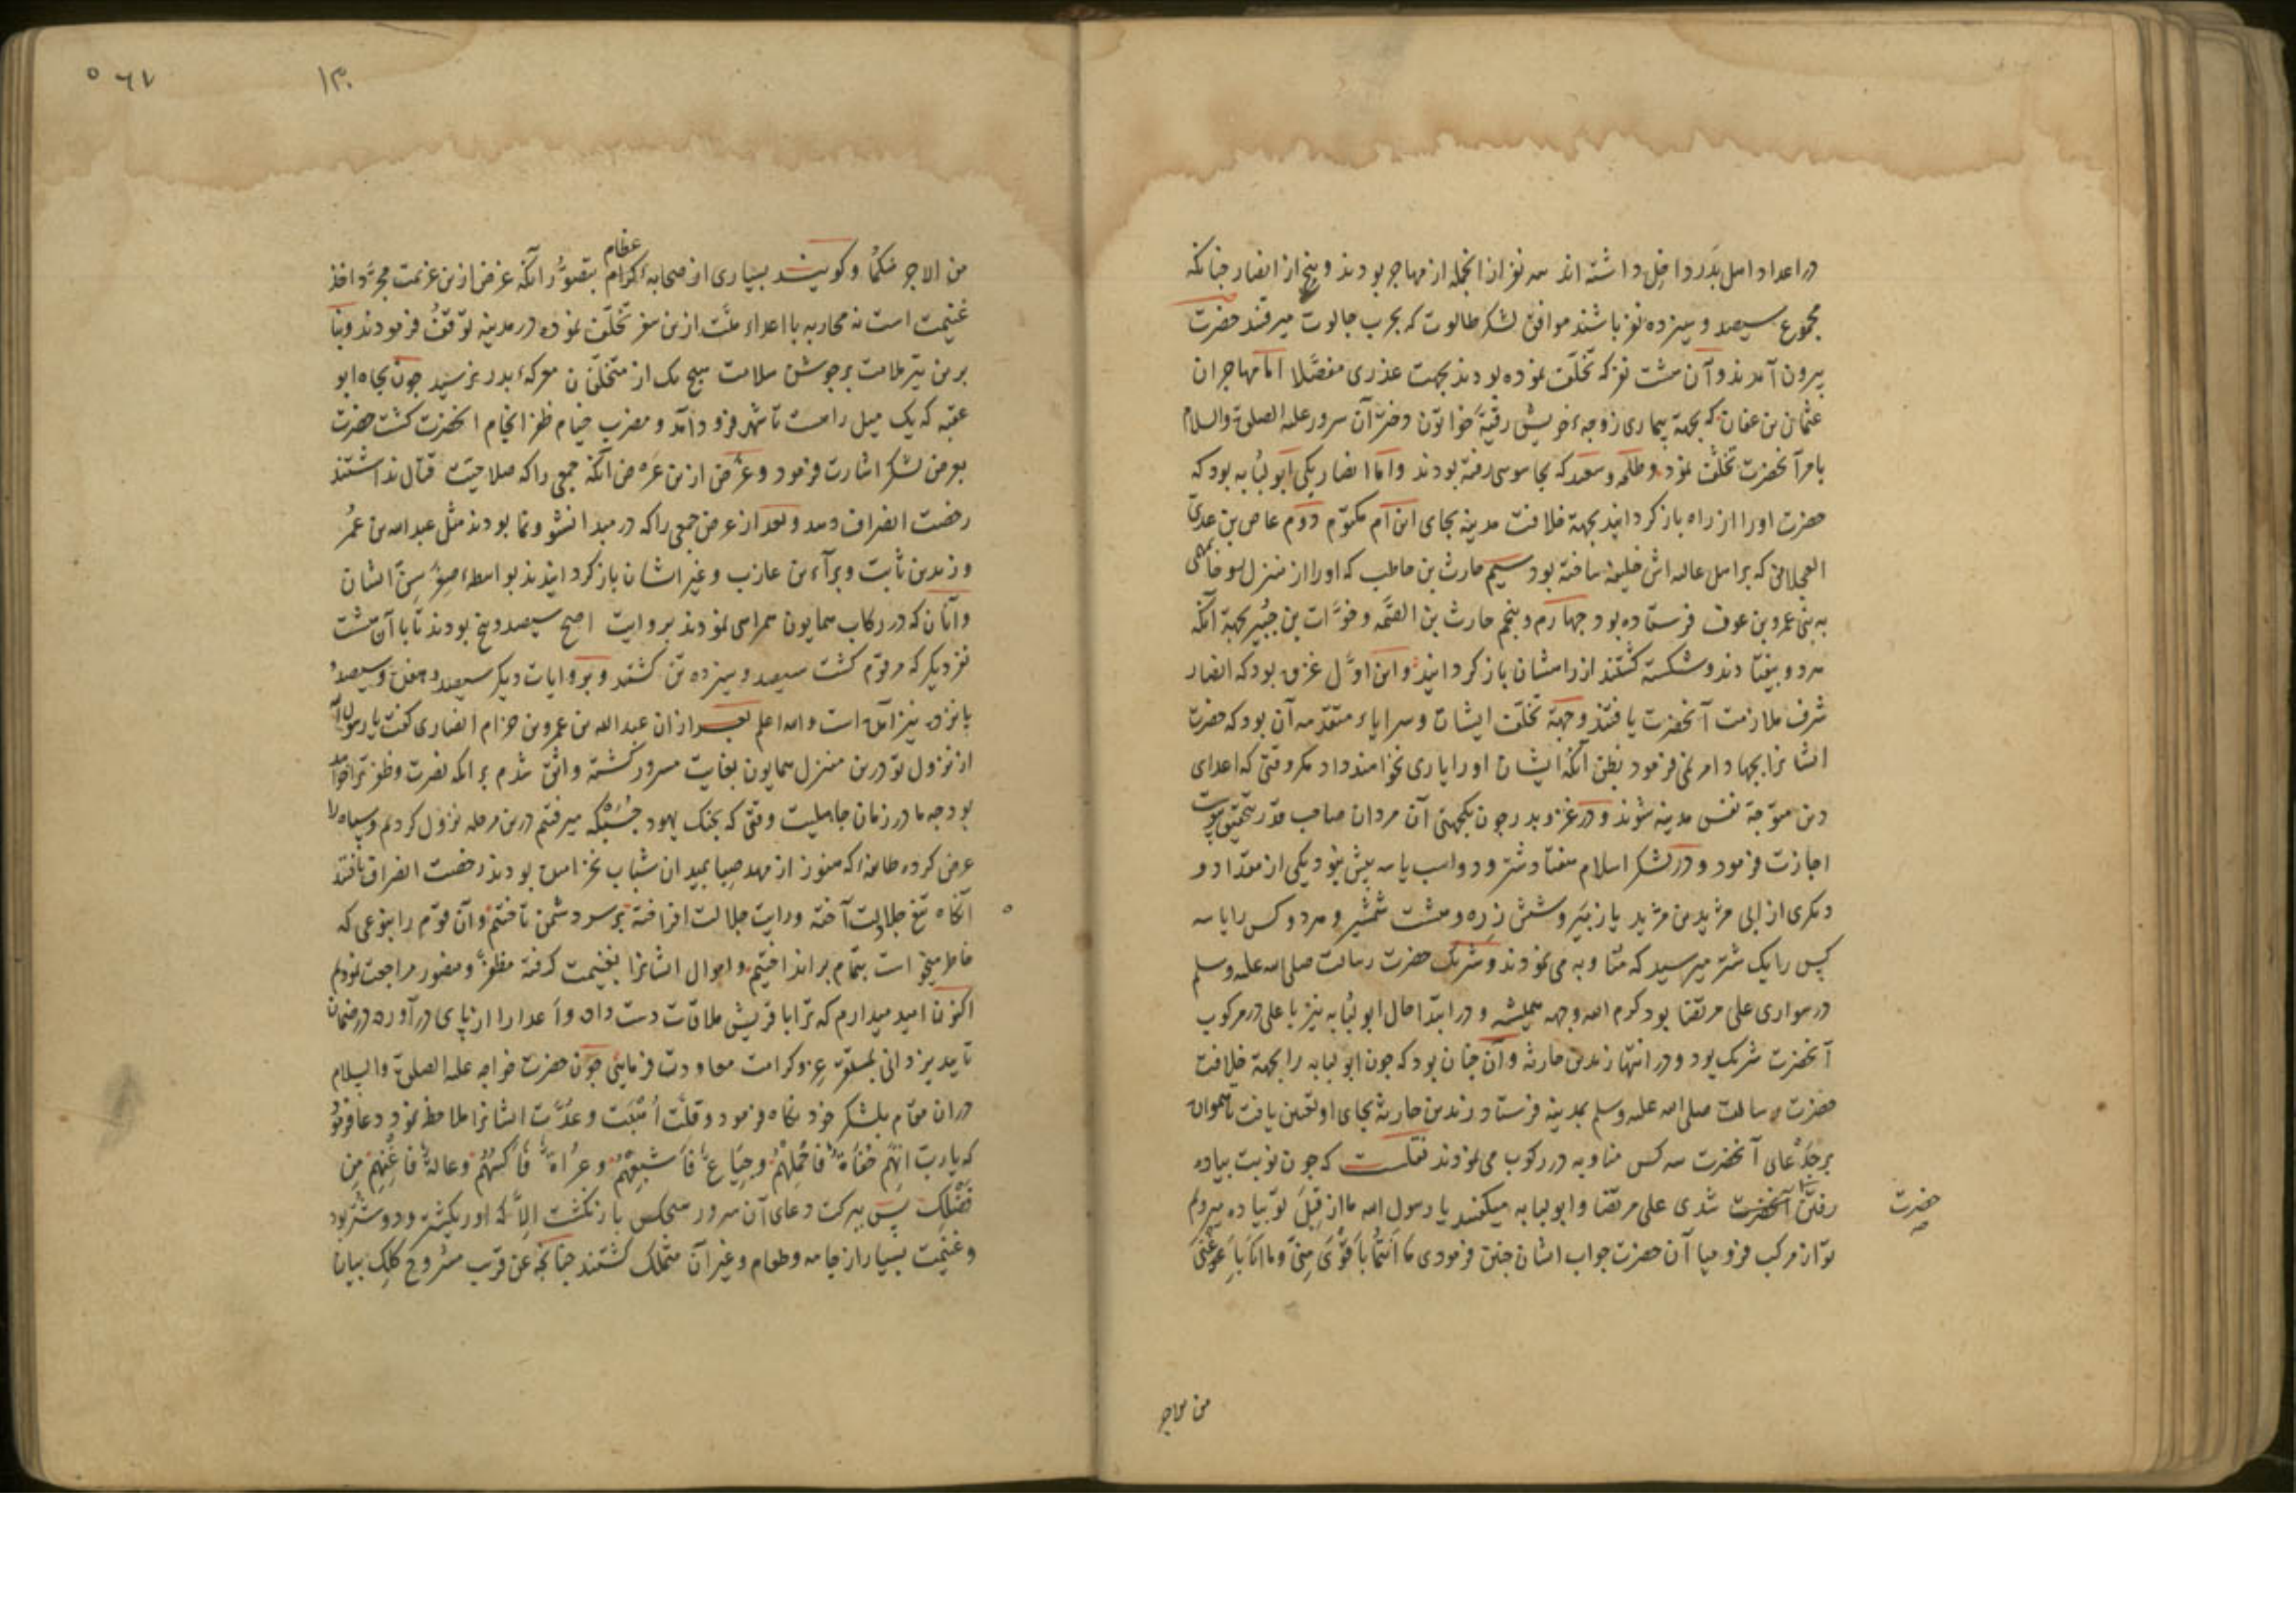 در اعداد اهل بدر داخل داشته اند سه نفر از انجمله از مهاجر بودند و پنج از انصار چنانکه
مجموع سیصد و سیزده نفر باشند موافق لشکر طالوت که بحرب جالوت میرفتند حضرت
بیرون آمدند و آن هشت نفر که تخلف نموده بودند بجهت عذری مفصلا اما مهاجران
عثمان بن عفان که بجهة بیماری زوجهٔ خویش رقیه خواتون دختر آن سرور علیه الصلوة والسلام
بامر آنحضرت تخلف نمود و طلحه و سعد که بجاسوسی رفته بودند و اما انصار یکی ابو لبابه بود که
حضرت اورا از راه باز کردانید بجهة خلافت مدینه بجای ابن ام مکتوم دوم عاص بن عدی
العجلانی که بر اهل عالیه اش خلیفه ساخته بود سیم حارث بن حاطب که اورا از منزل
به بنی عمرو بن عوف فرستاده بود چهارم و پنجم حارث بن الصمه و خوات بن جبیر بجهة آنکه
هر دو بیفتادند و شکسته کشتند از راهشان باز کردانید و این اول غزوه بود که انصار
شرف ملازمت آنحضرت یافتند و جهة تخلف ایشان و سرایاء متقدمه آن بود که حضرت
ایشانرا بجهاد امر نمی فرمود بظن آنکه ایشان اورا یاری نخواهند داد مکر وقتی که اعدای
دین متوجه نفس مدینه شوند و در غزو بدر چون یکجهتی آن مردان صاحب قدر بتحقیق پیوست
اجازت فرمود و در لشکر اسلام هفتاد شتر و دو اسب یا سه بیش نبود یکی از مقداد و
دیکری از ابی مرثد بن مرثد یا زبیر و شش زره و هشت شمشیر و هر دو کس را یا سه
کس را یک شتر میرسید که متناوبه می نمودند و شریک حضرت رسالت صلی الله علیه وسلم
در سواری علی مرتضا بود کرم الله وجهه همیشه و در ابتدا حال ابو لبابه نیز با علی در مرکوب
آنحضرت شریک بود و در انتها زید بن حارثه و آن چنان بود که چون ابو لبابه را بجهة خلافت
حضرت رسالت صلی الله علیه وسلم بمدینه فرستاد زید بن حارثه بجای او تعیین یافت تا
بر جمل آنحضرت سه کس متناوبه در رکوب می نمودند نقلست که چون نوبت پیاده
رفتن آنحضرت شدی علی مرتضا و ابو لبابه میکفتند یا رسول الله ما از قبل تو پیاده میرویم
حضرت
تو از مرکب فرو میا آن حضرت جواب ایشان چنین فرمودی ما انتما باقوی منی وما انا باغنی
من الاجر
۵۶۷
۱۳۰
من الاجر منکما و کویند بسیاری از صحابهٔ کرام بتصور آنکه غرض ازین عزیمت مجرد اخذ
عظام
غنیمت است نه محاربه با اعداء ملت ازین سفر تخلف نموده در مدینه توقف فرمودند و بنا
برین تیر ملامت بر جوشن سلامت هیچ یک از متخلفان معرکهٔ بدر نرسید چون بچاه ابو
عقبه که یک میل راهست تا شهر فرود آمد و مضرب خیام ظفر انجام آنحضرت کشت حضرت
بعرض لشکر اشارت فرمود و غرض ازین عرض آنکه جمعی را که صلاحیت قتال نداشتند
رخصت انصراف دهد و بعد از عرض جمعی را که در مبدا نشو و نما بودند مثل عبد الله بن عمر
و زید بن ثابت و براء بن عازب و غیر ایشان باز کردانیدند بواسطهٔ صغر سن ایشان
و آنان که در رکاب همایون همراهی نمودند بروایت اصح سیصد و پنج بودند تا با آن هشت
نفر دیکر که مرقوم کشت سیصد و سیزده تن کشتند و بروایات دیکر سیصد و هفده و سیصد و
پانزده نیز آمده است والله اعلم بعد از آن عبد الله بن عمرو بن حزام انصاری کفت یا رسول الله
از نزول تو درین منزل همایون بغایت مسرور کشته واثق شدم بر آنکه نصرت و ظفر ترا خواهد
بود چه ما در زمان جاهلیت وقتی که بجنک یهود حسیکه میرفتیم درین مرحله نزول کردیم و سپاه را
عرض کرده طایفهٔ که هنوز از مهد صبا بمیدان شباب نخرامیده بودند رخصت انصراف یافتند
آنکاه تیغ جلادت آخته و رایت جلالت افراخته بر سر دشمن تاختیم و آن قوم را بنوعی که
خاطر میخواست بتمام برانداختیم و اموال ایشانرا بغنیمت کرفته مظفر و منصور مراجعت نمودیم
اکنون امید میدارم که ترا با قریش ملاقات دست داده و اعدا را از پای در آورده در ضمان
تایید یزدانی بمستقر عز و کرامت معاودت فرمایی چون حضرت خواجه علیه الصلوة والسلام
در ان مقام بلشکر خود نکاه فرمود و قلت اهبت و عدت ایشانرا ملاحظه نمود دعا فرمود
که یارب انهم حفاة فاحملهم وجیاع فاشبعهم وعراة فاکسهم وعالة فاغنهم من
فضلک پس ببرکت دعای آن سرور هیچکس باز نکشت الا که اورا یکشتر و دو شتر بود
و غنیمت بسیار از جامه و طعام و غیر آن متملک کشتند چنانچه عن قریب مشروح کلک بیان